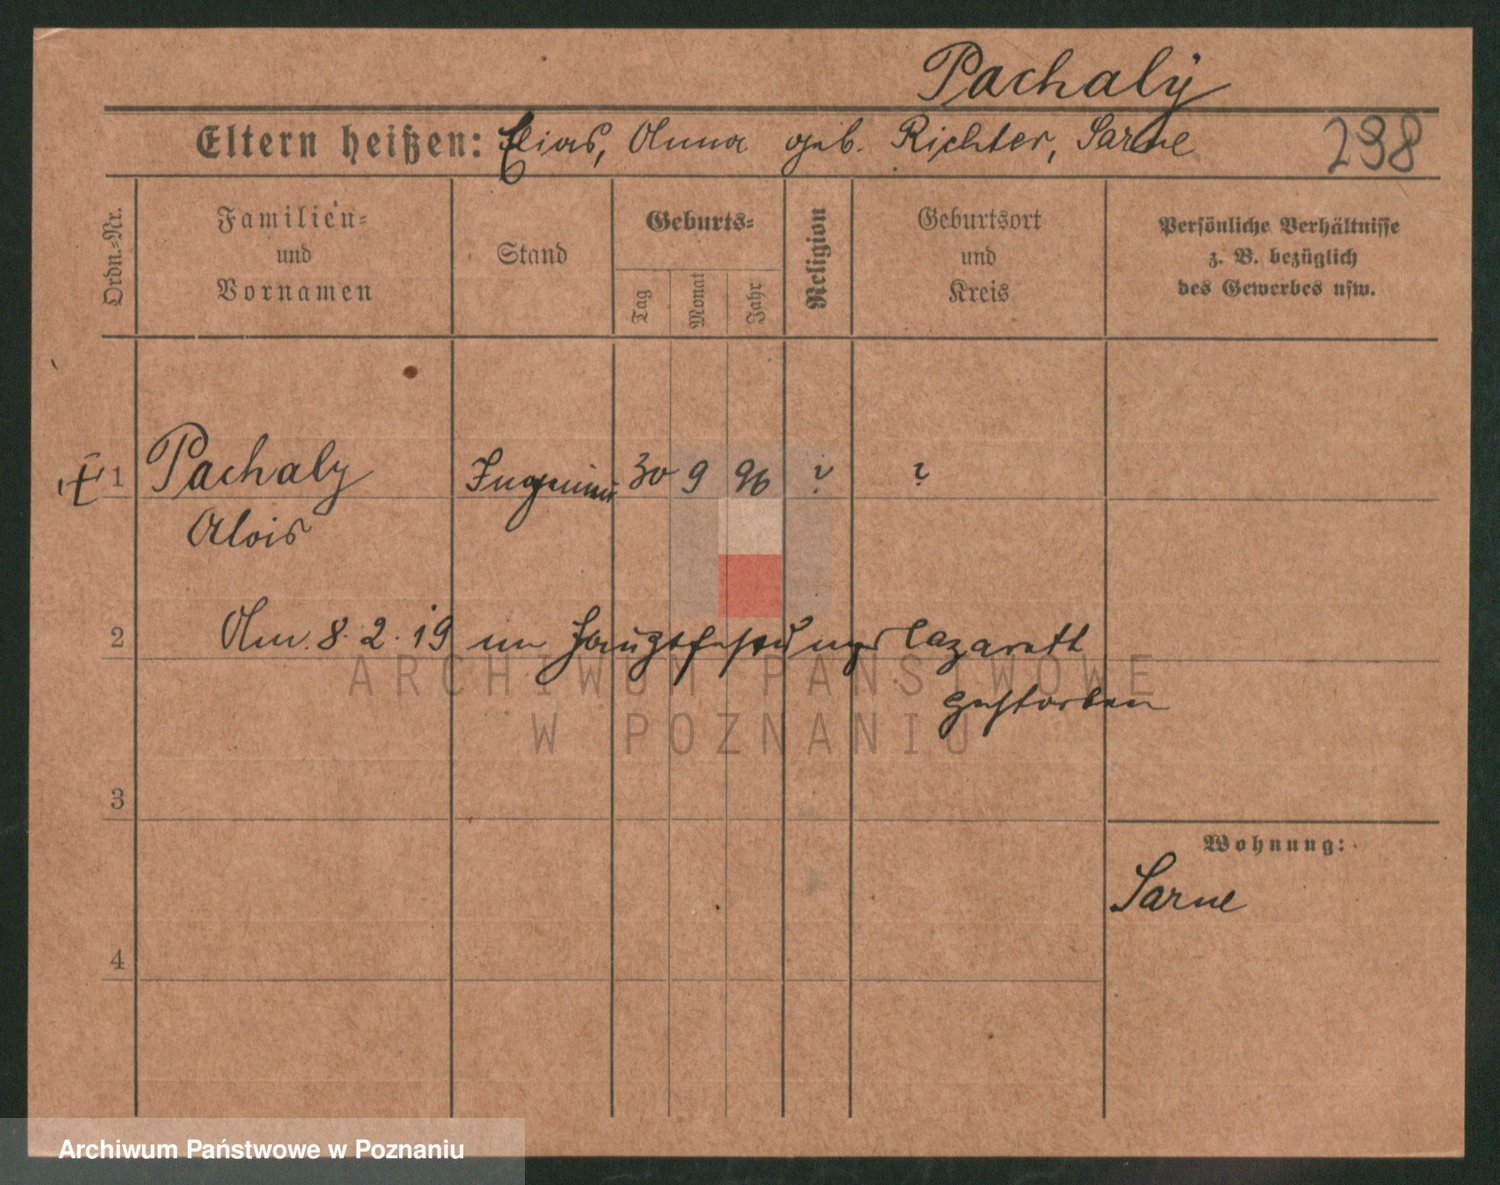 Pachalÿ
Eltern heißen: Elias, Anna geb. Richter, Sarne 298
Ordn.-Nr.
Familien-
und
Vornamen
Stand
Geburts-
Tag
Monat
Jahr
Religion
Geburtsort
und
Kreis
Persönliche Verhältnisse
z. B. bezüglich
des Gewerbes usw.
1 Pachaly 30 9 96 ? ?
Alois
2 Am 8.2.19 im Hauptfestungslazarett
gestorben
3
Wohnung:
Sarne
4
ARCHIWUM PAŃSTWOWE
W POZNANIU
Archiwum Państwowe w Poznaniu